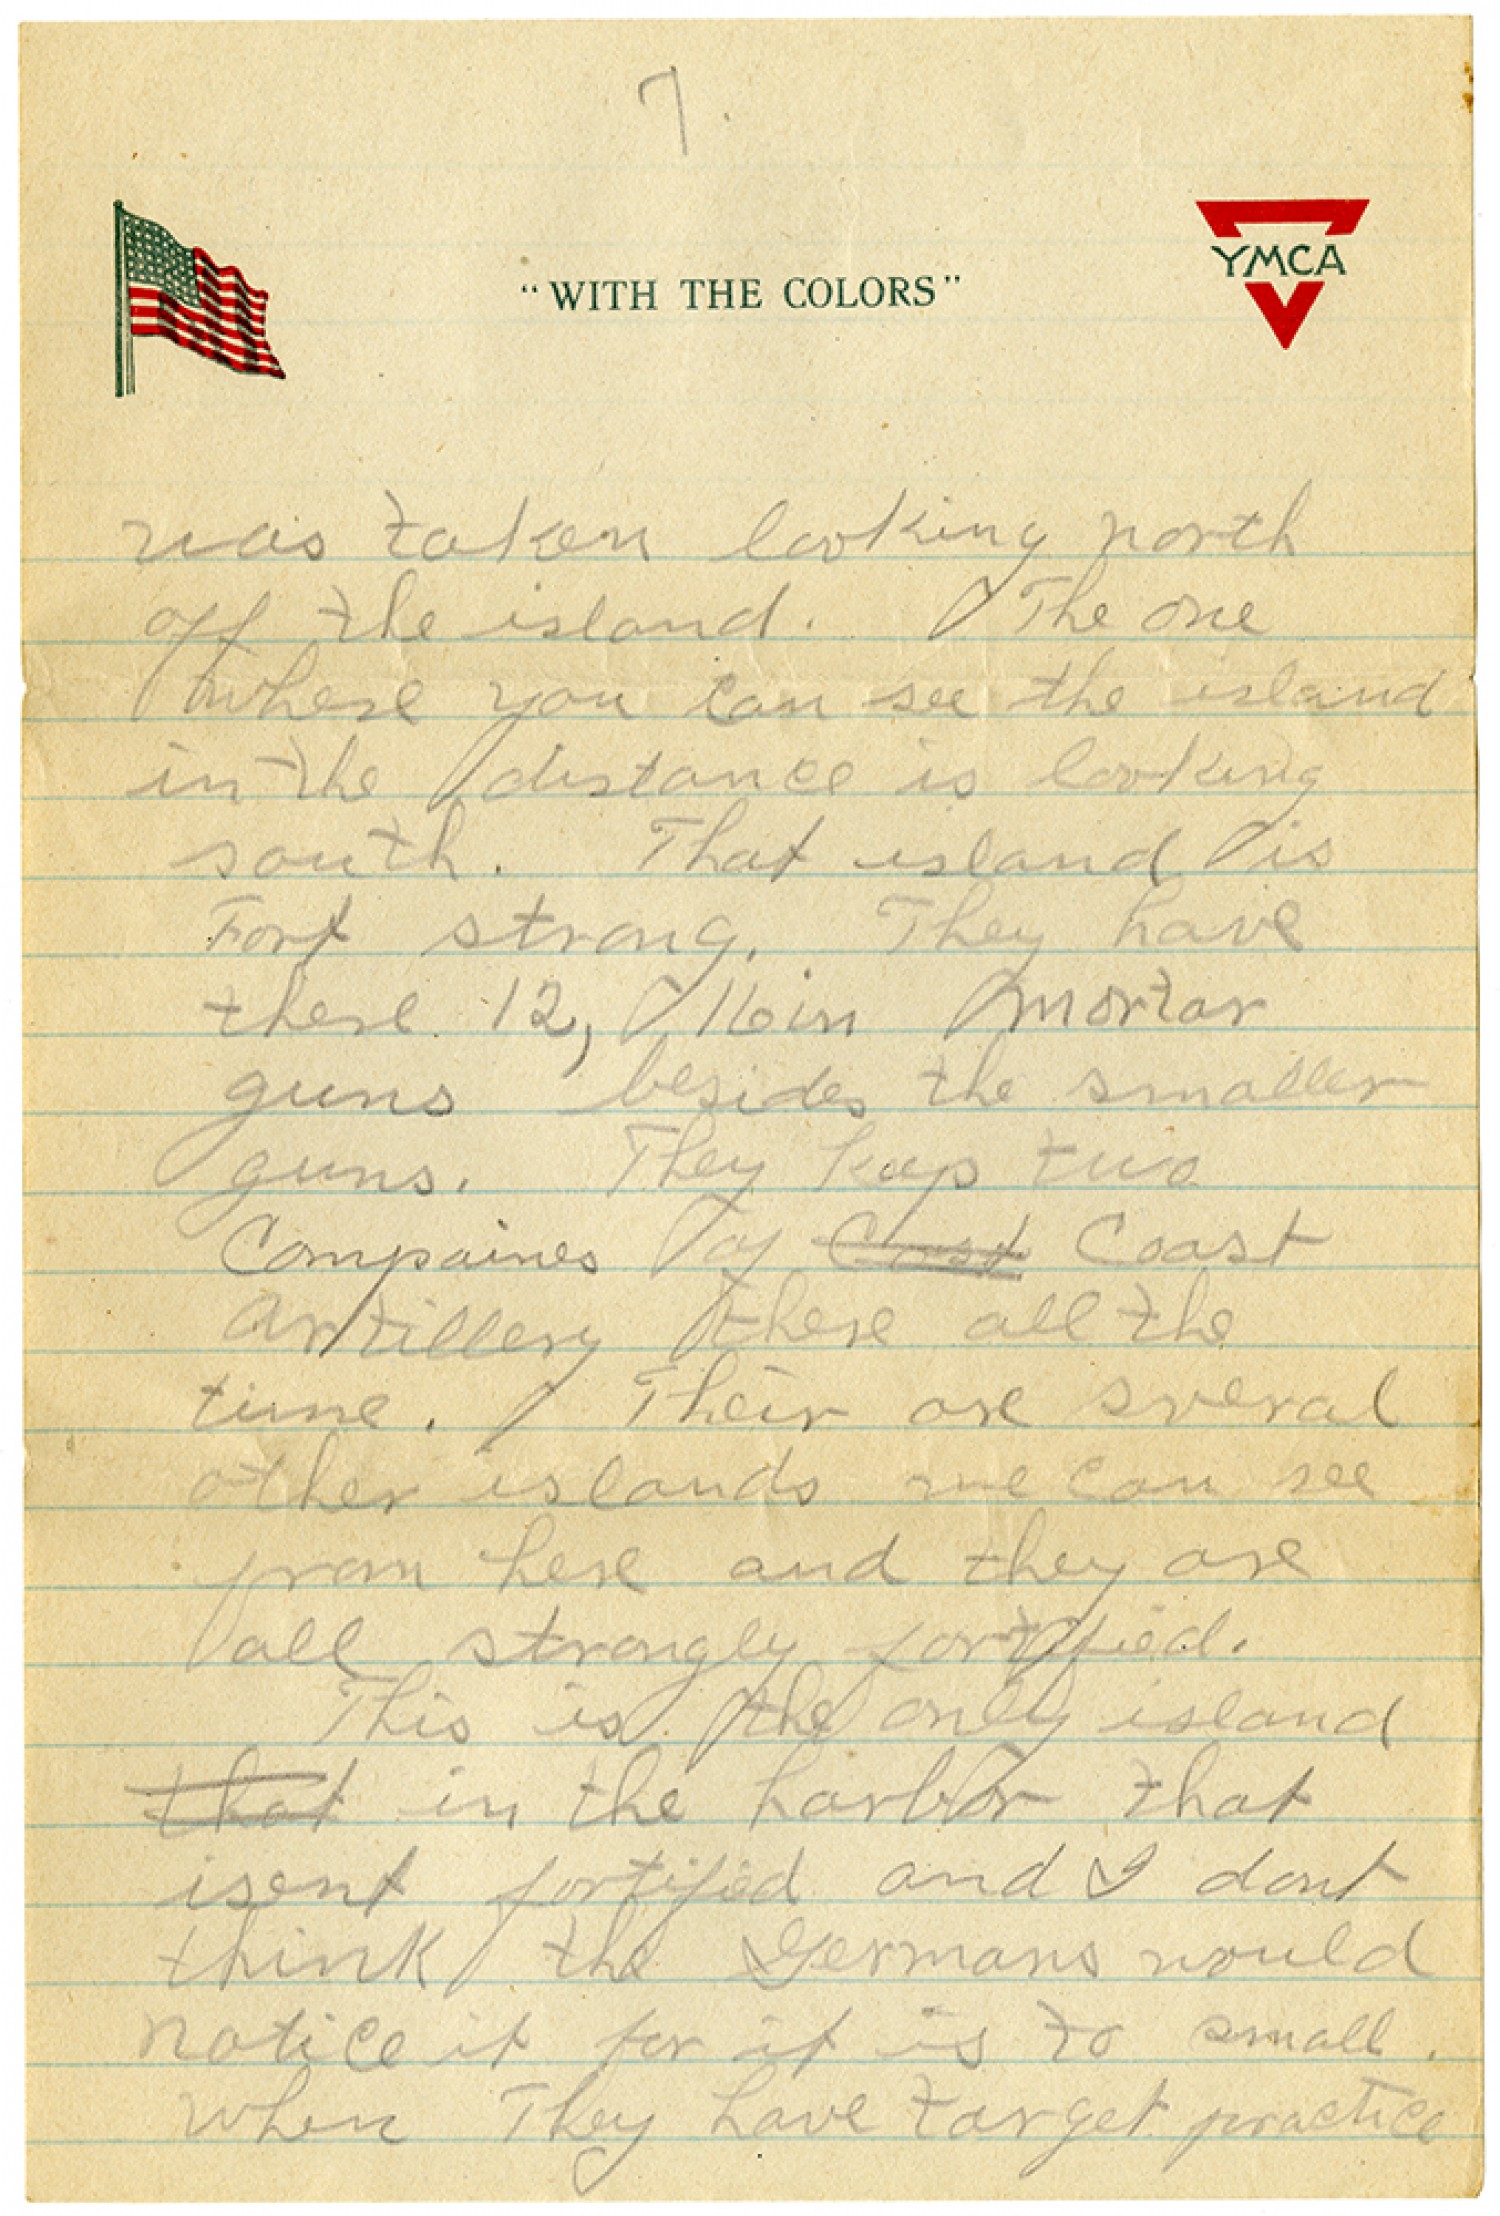 7.
"WITH THE COLORS"
YMCA
was taken looking north
off the island. The one
where you can see the island
in the distance is looking
south. That island is
Fort strong. They have
there 12, 16in mortar
guns besides the smaller
guns. They keep two
Compaines of ~~Cost~~ Coast
Artillery there all the
time. Their are several
other islands we can see
from here and they are
all strongly fortified.
This is the only island
~~that~~ in the harbor that
isent fortified and I dont
think the Germans would
notice it for it is to small.
When They have target practice